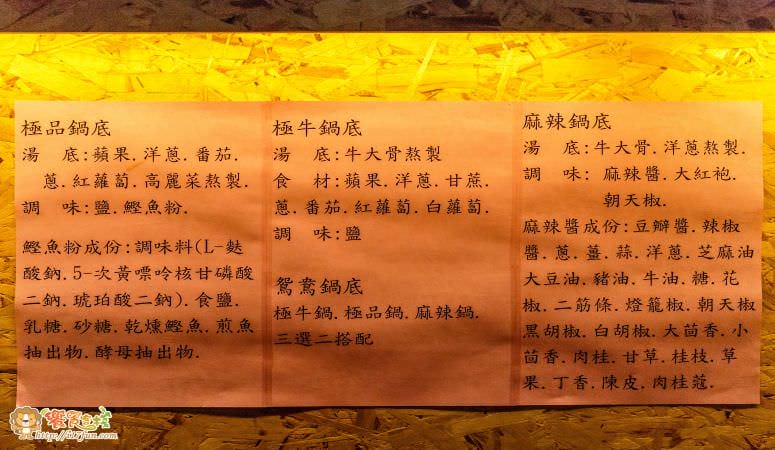 極品鍋底
湯　底:蘋果.洋蔥.番茄.
蔥.紅蘿蔔.高麗菜熬製.
調　味:鹽.鰹魚粉.
鰹魚粉成份:調味料(L-麩
酸鈉.5-次黃嘌呤核甘磷酸
二鈉.琥珀酸二鈉).食鹽.
乳糖.砂糖.乾燻鰹魚.煎魚
抽出物.酵母抽出物.
極牛鍋底
湯　底:牛大骨熬製
食　材:蘋果.洋蔥.甘蔗.
蔥.番茄.紅蘿蔔.白蘿蔔.
調　味:鹽
鴛鴦鍋底
極牛鍋.極品鍋.麻辣鍋.
三選二搭配
麻辣鍋底
湯　底:牛大骨.洋蔥熬製.
調　味: 麻辣醬.大紅袍.
朝天椒.
麻辣醬成份:豆瓣醬.辣椒
醬.蔥.薑.蒜.洋蔥.芝麻油
大豆油.豬油.牛油.糖.花
椒.二筋條.燈籠椒.朝天椒
黑胡椒.白胡椒.大茴香.小
茴香.肉桂.甘草.桂枝.草
果.丁香.陳皮.肉桂蔻.
http://i17fun.com